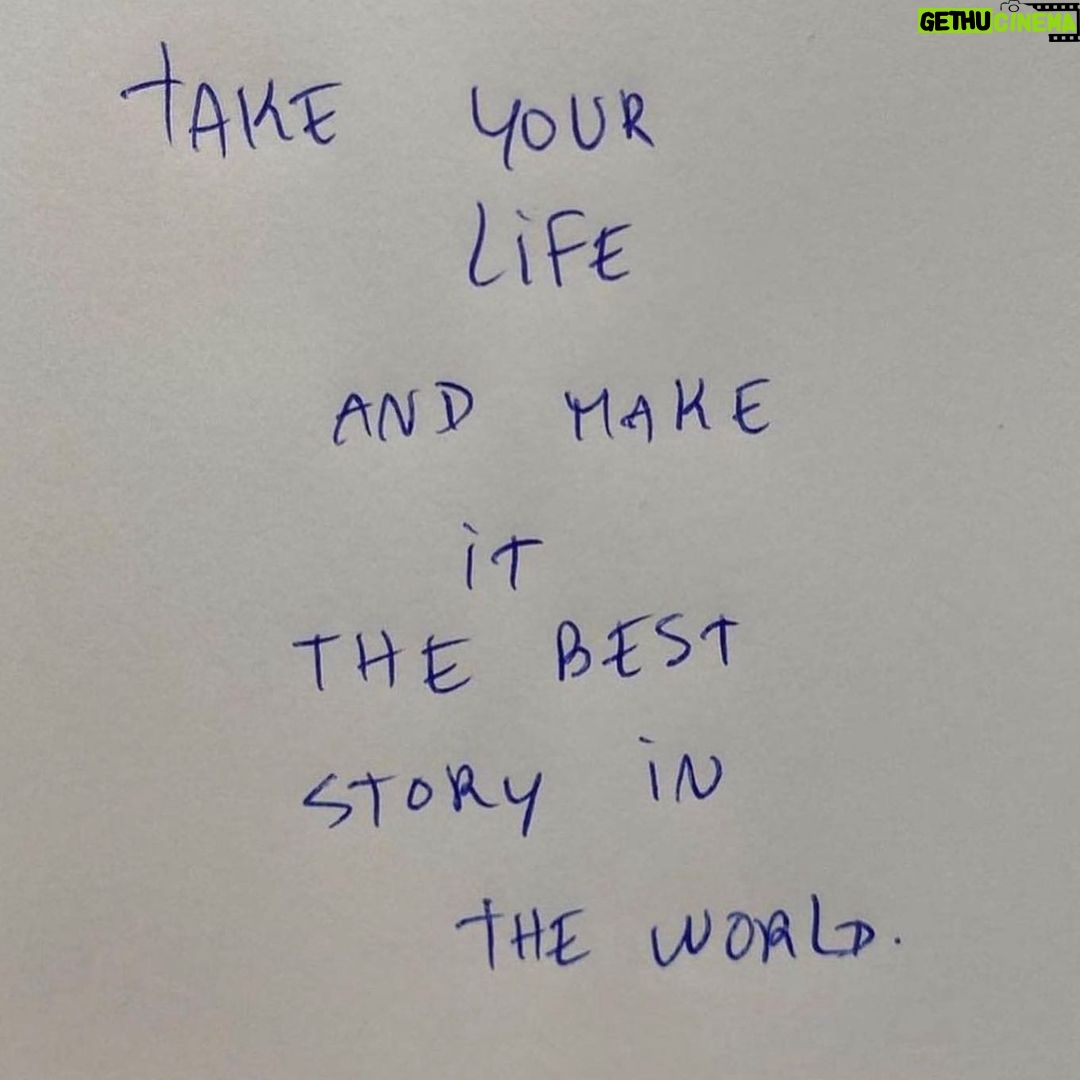 GETHUCINEMA
TAKE YOUR
LiFE
AND MAKE
iT
THE BEST
STORY iN
THE WORLD.